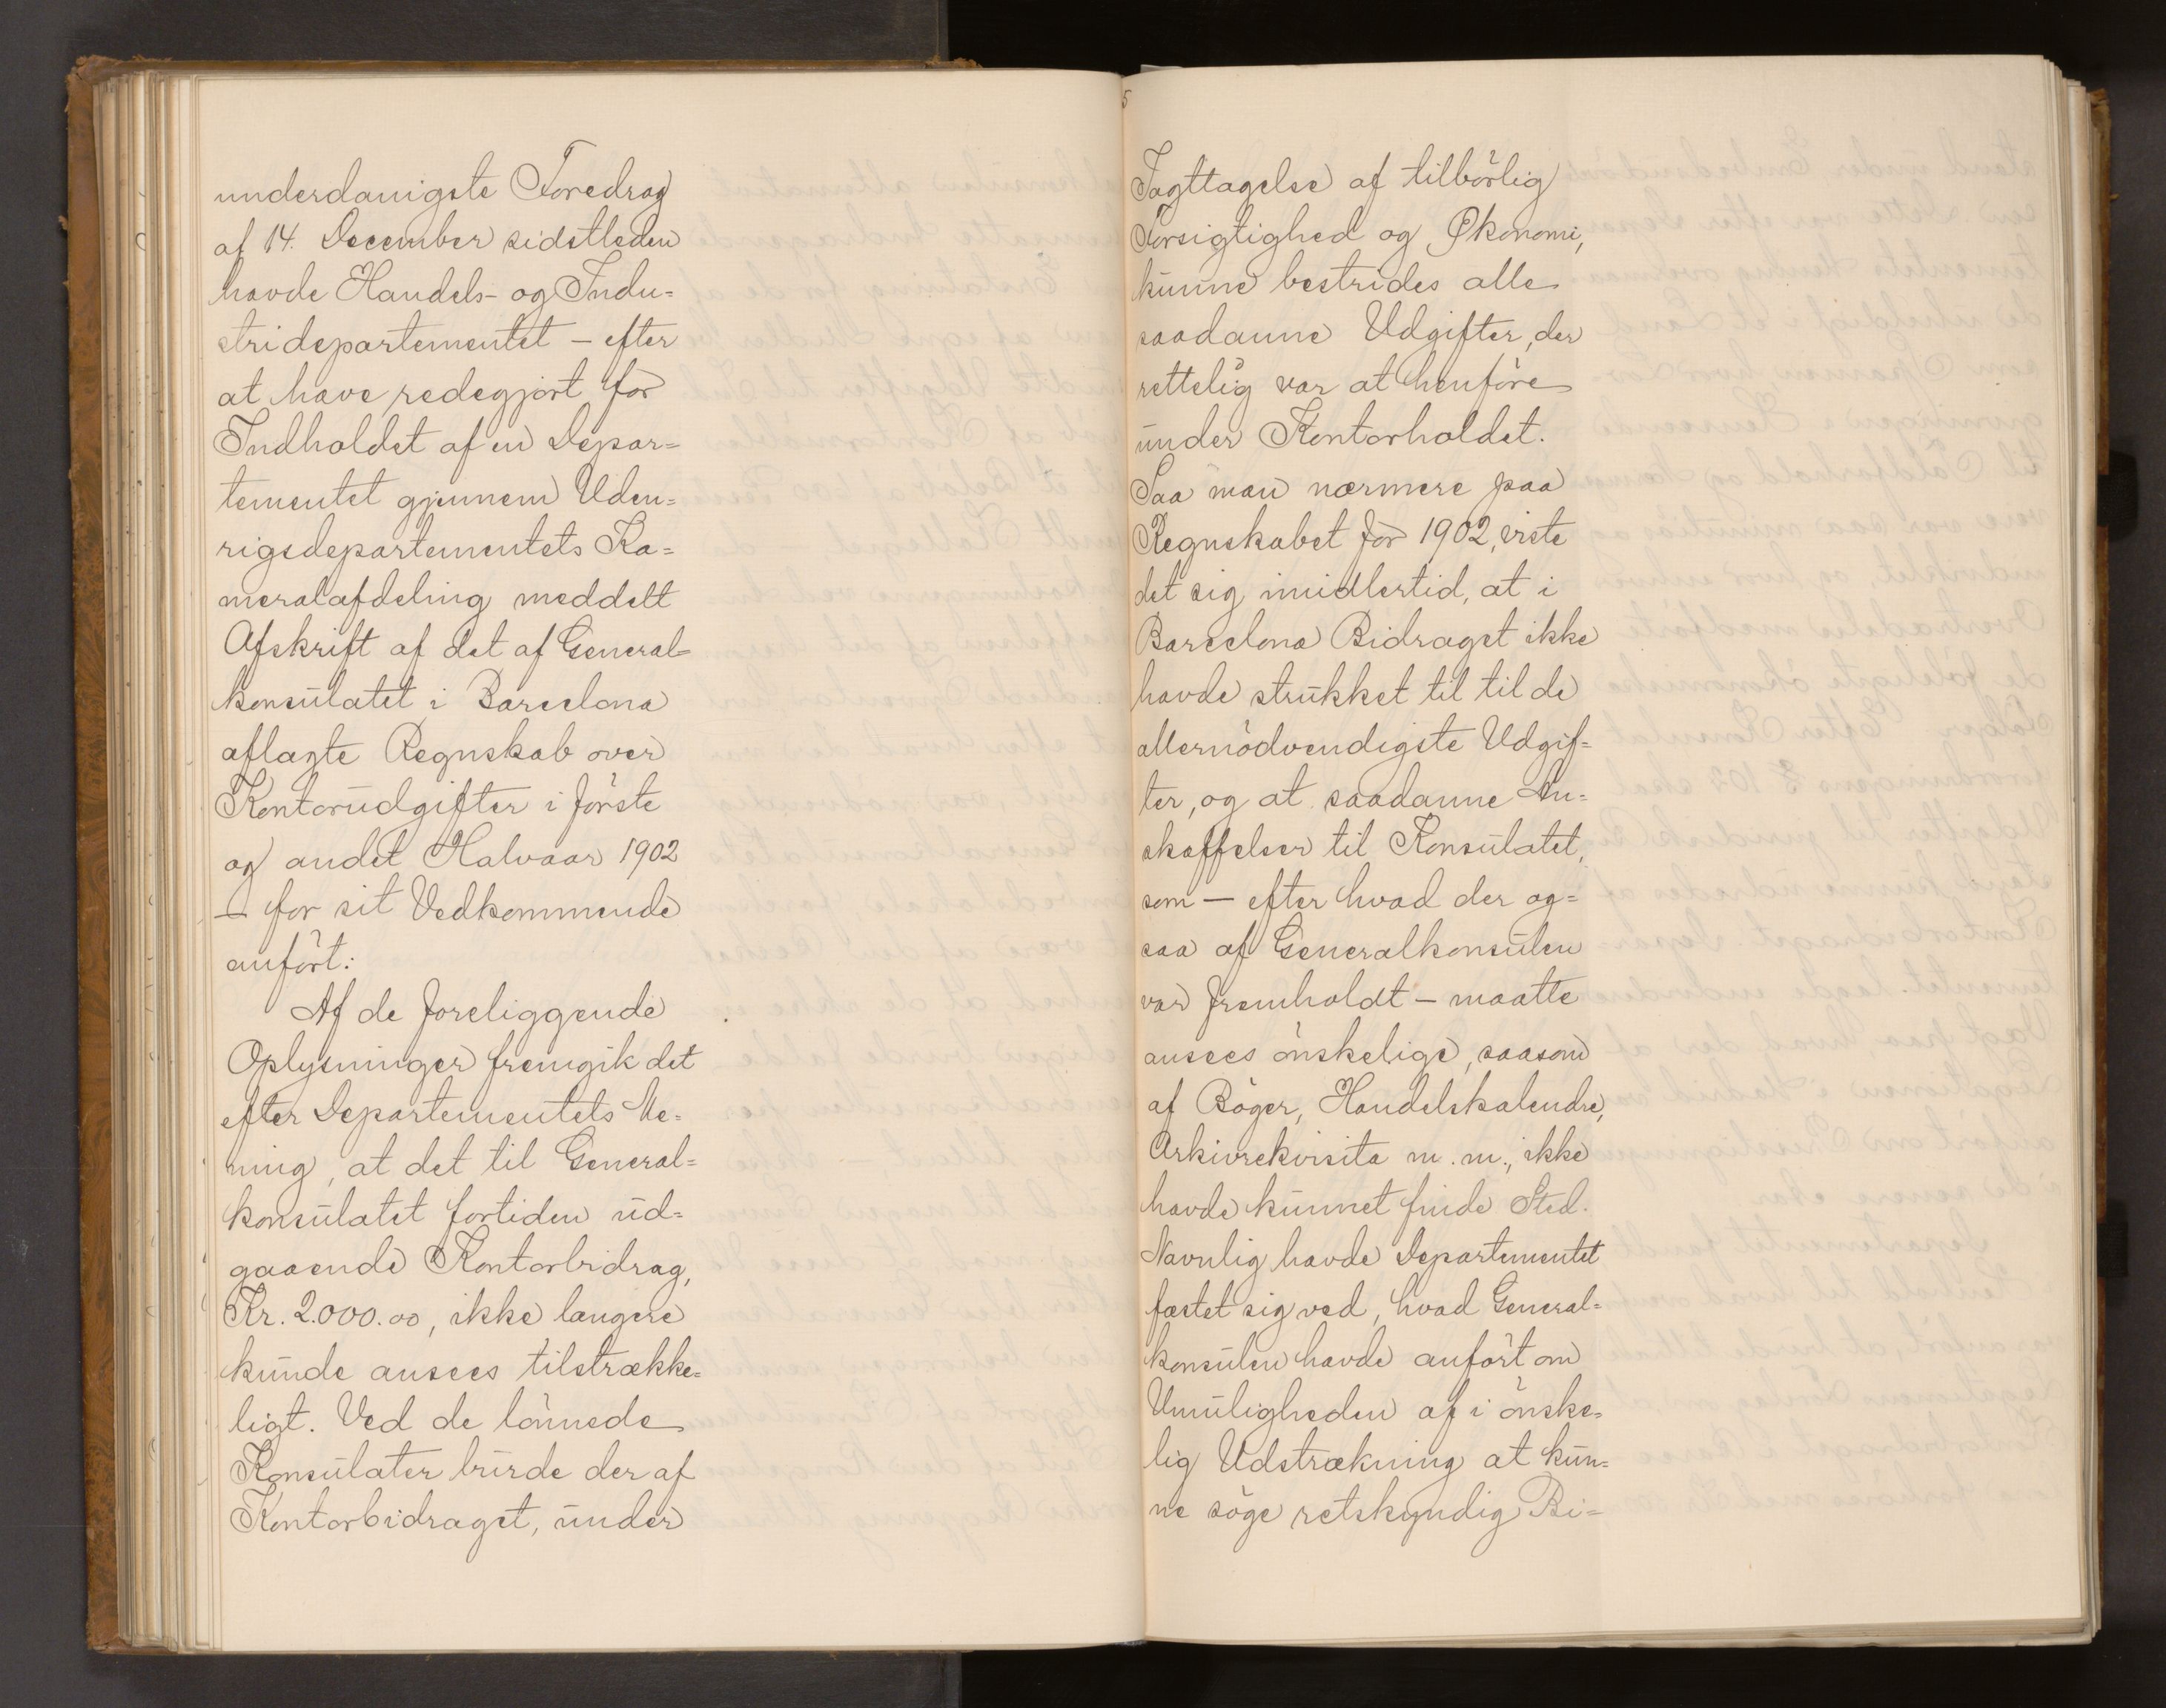 underdanigste Foredrag
af 14. December sidstleden
havde Handels- og Indu=
stridepartementet – efter
at have redegjort for
Indholdet af en Depar=
tementet gjennem Uden=
rigsdepartementets Ka=
meralafdeling meddelt
Afskrift af det af General=
konsulatet i Barcelona
aflagte Regnskab over
Kontorudgifter i förste
og andet Halvaar 1902
– for sit Vedkommende
anfört:
Af de foreliggende
Oplysninger fremgik det
efter Departementets Me=
ning, at det til General=
konsulatet fortiden ud=
gaaende Kontorbidrag,
Kr. 2.000.00, ikke længere
kunde ansees tilstrække=
ligt. Ved de lönnede
Konsulater burde der af
Kontorbidraget, under
5
Iagttagelse af tilbörlig
Forsigtighed og Økonomi,
kunne bestrides alle
saadanne Udgifter, der
rettelig var at henföre
under Kontorholdet.
Saa man nærmere paa
Regnskabet for 1902, viste
det sig imidlertid, at i
Barcelona Bidraget ikke
havde strukket til til de
allernödvendigste Udgif=
ter, og at saadanne An=
skaffelser til Konsulatet,
som – efter hvad der og=
saa af Generalkonsulen
var fremholdt – maatte
ansees önskelige, saasom
af Böger, Handelskalendre,
Arkivrekvisita m. m., ikke
havde kunnet finde Sted.
Navnlig havde Departementet
fæstet sig ved, hvad General=
konsulen havde anfört om
Umuligheden af i önske=
lig Udstrækning at kun=
ne söge retskyndig Bi=